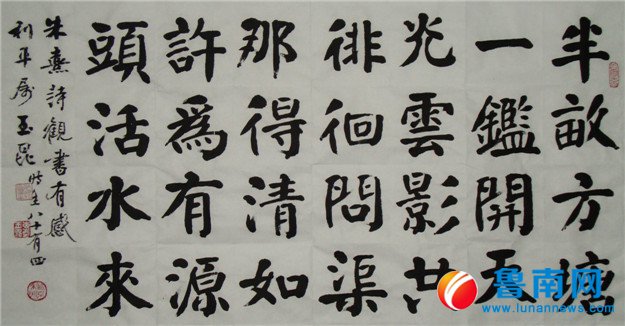 半畝方塘
一鑑開天
光雲影共
徘徊問渠
那得清如
許爲有源
頭活水來
朱熹詩觀書有感
時年八十有四
魯南网
www.lunannews.com